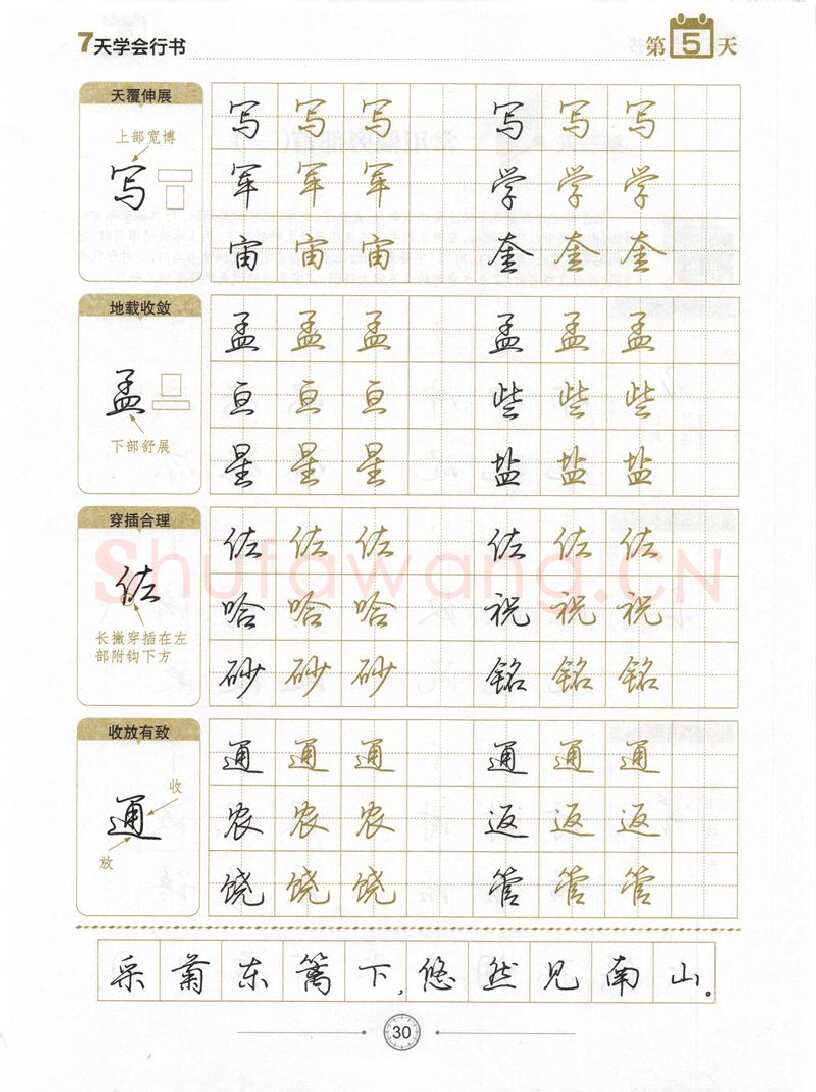 7天学会行书 第5天
天覆伸展
上部宽博
写
写 写 写 写 写 写
军 军 军 学 学 学
宙 宙 宙 奎 奎 奎
地载收敛
孟
下部舒展
孟 孟 孟 孟 孟 孟
亘 亘 亘 些 些 些
星 星 星 盐 盐 盐
穿插合理
佐
长撇穿插在左
部附钩下方
佐 佐 佐 佐 佐 佐
哈 哈 哈 祝 祝 祝
砂 砂 砂 铭 铭 铭
Shufawang.CN
收放有致
收
通
放
通 通 通 通 通 通
农 农 农 返 返 返
饶 饶 饶 管 管 管
采菊东篱下,悠然见南山。
30